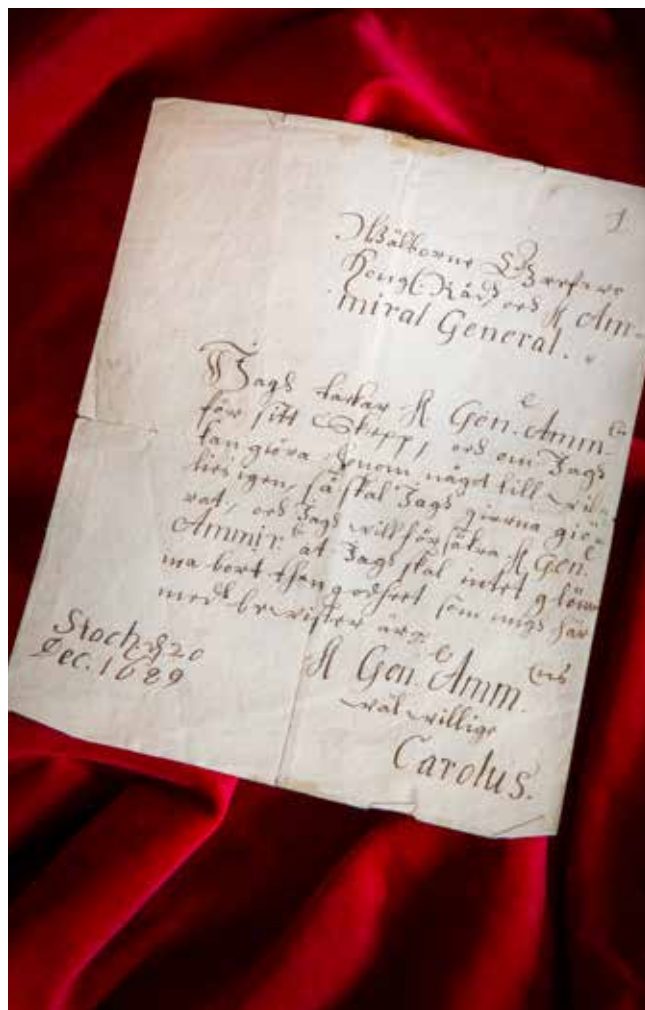 1.
Wälborne H. Grefwe
Kongl. Råd och H Am-
miral General.
Jagh tackar H Gen. Amm.
för sitt Skepp, och om Jagh
kan giöra honom något till wil-
lies igen, så skal Jagh gierna giö-
rat, och Jagh will försäkra H Gen.
Ammir. at Jagh skal intet glöm-
ma bort then godheet som migh här
medh bewister är.
H Gen. Amm.
wälwillige
Carolus.
Stoch. d 20
Dec. 1689